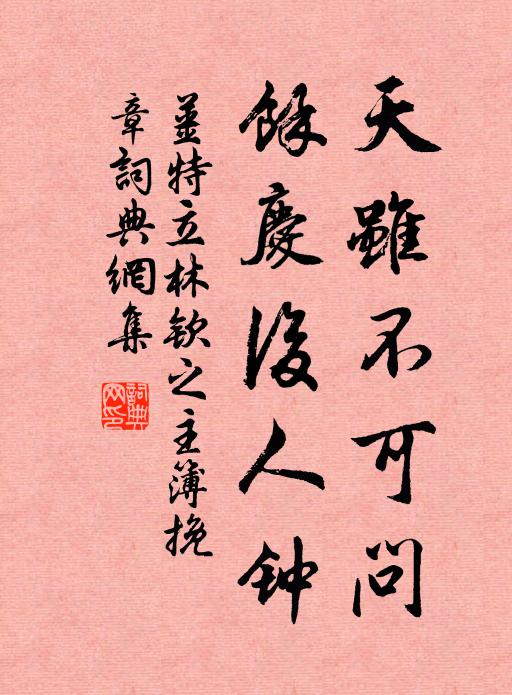 天雖不可問
餘慶後人钟
姜特立林欽之主簿挽
章詞典網集
詞典
网印